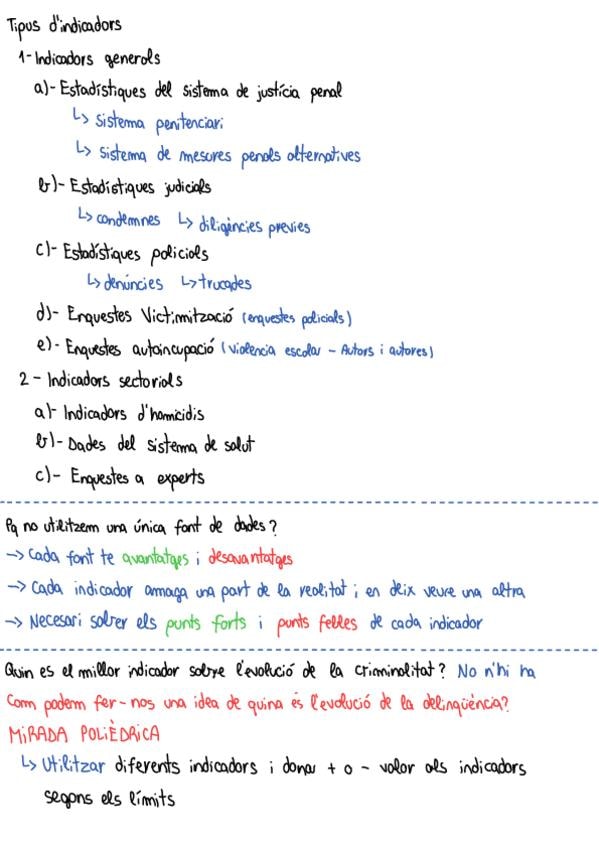 Tipus d'indicadors
1- Indicadors generals
a)- Estadístiques del sistema de justícia penal
↳ sistema penitenciari
↳ sistema de mesures penals alternatives
b)- Estadístiques judicials
↳ condemnes ↳ diligències previes
c)- Estadístiques policials
↳ denúncies ↳ trucades
d)- Enquestes Victimització (enquestes policials)
e)- Enquestes autoincupació (violencia escolar - Autors i autores)
2 - Indicadors sectorials
a)- Indicadors d'homicidis
b)- Dades del sistema de salut
c)- Enquestes a experts
Pq no utilitzem una única font de dades?
→ Cada font te avantatges i desavantatges
→ Cada indicador amaga una part de la realitat i en deix veure una altra
→ Necesari saber els punts forts i punts febles de cada indicador
Quin es el millor indicador sobre l'evolució de la criminalitat? No n'hi ha
Com podem fer-nos una idea de quina és l'evolució de la delinqüència?
MIRADA POLIÈDRICA
↳ Utilitzar diferents indicadors i donar + o - valor als indicadors
segons els límits